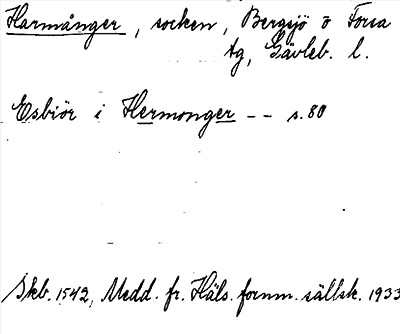 Harmånger, socken, Bergsjö o Forsa
tg, Gävleb. l.
Esbiör i Hermonger -- s. 80
Skb. 1542, Medd. fr. Häls. fornm. sällsk. 1933